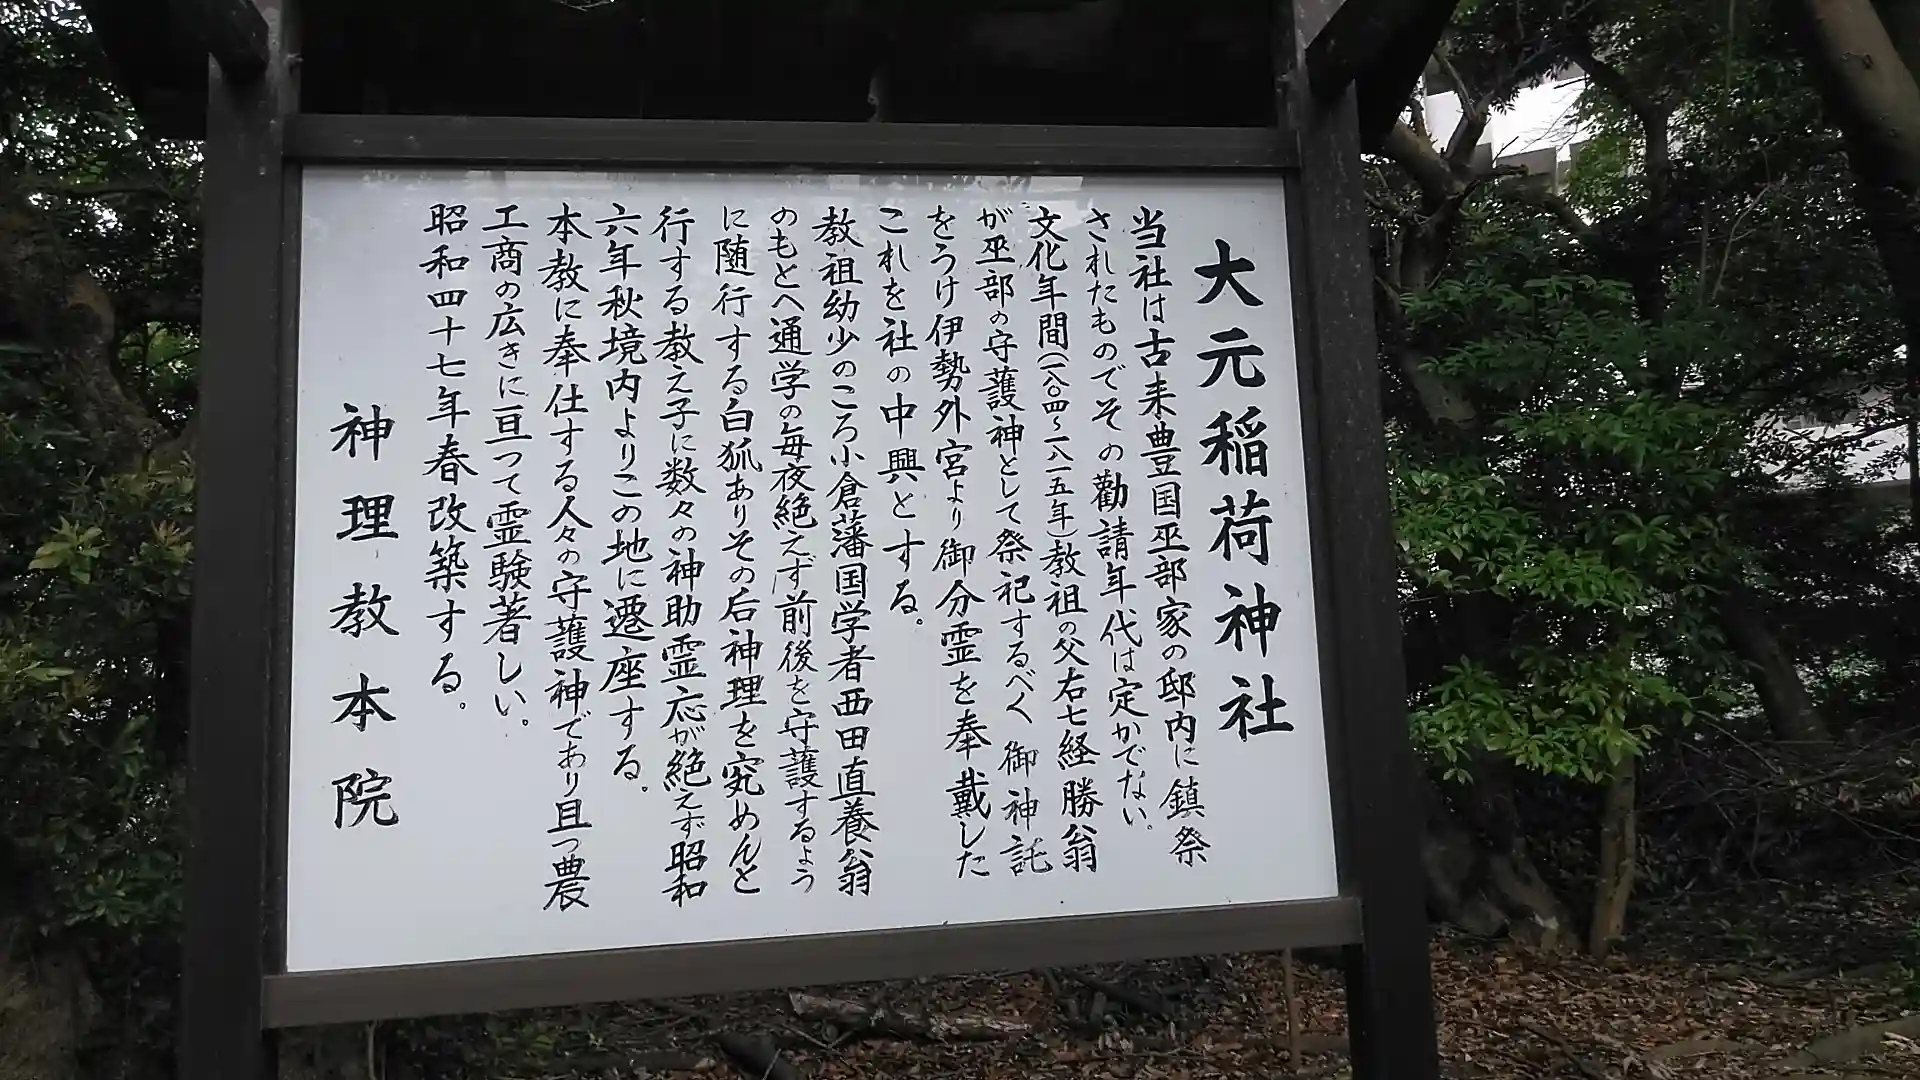 大元稲荷神社
当社は古来豊国巫部家の邸内に鎮祭
されたものでその勸請年代は定かでない。
文化年間(一八〇四~一八一五年)教祖の父右七経勝翁
が巫部の守護神として祭祀するべく御神託
をうけ伊勢外宮より御分霊を奉戴した
これを社の中興とする。
教祖幼少のころ小倉藩国学者西田直養翁
のもとへ通学の毎夜絶えず前後を守護するよう
に随行する白狐ありその后神理を究めんと
行する教え子に数々の神助霊応が絶えず昭和
六年秋境内よりこの地に遷座する。
本教に奉仕する人々の守護神であり且つ農
工商の広きに亘って霊験著しい。
昭和四十七年春改築する。
神理教本院